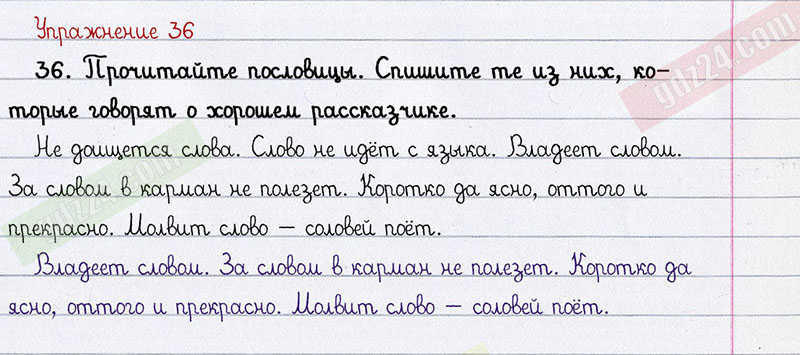 Упражнение 36
36. Прочитайте пословицы. Спишите те из них, ко-
торые говорят о хорошем рассказчике.
Не доищется слова. Слово не идёт с языка. Владеет словом.
За словом в карман не полезет. Коротко да ясно, оттого и
прекрасно. Молвит слово – соловей поёт.
Владеет словом. За словом в карман не полезет. Коротко да
ясно, оттого и прекрасно. Молвит слово – соловей поёт.
gdz24.com
gdz24.com